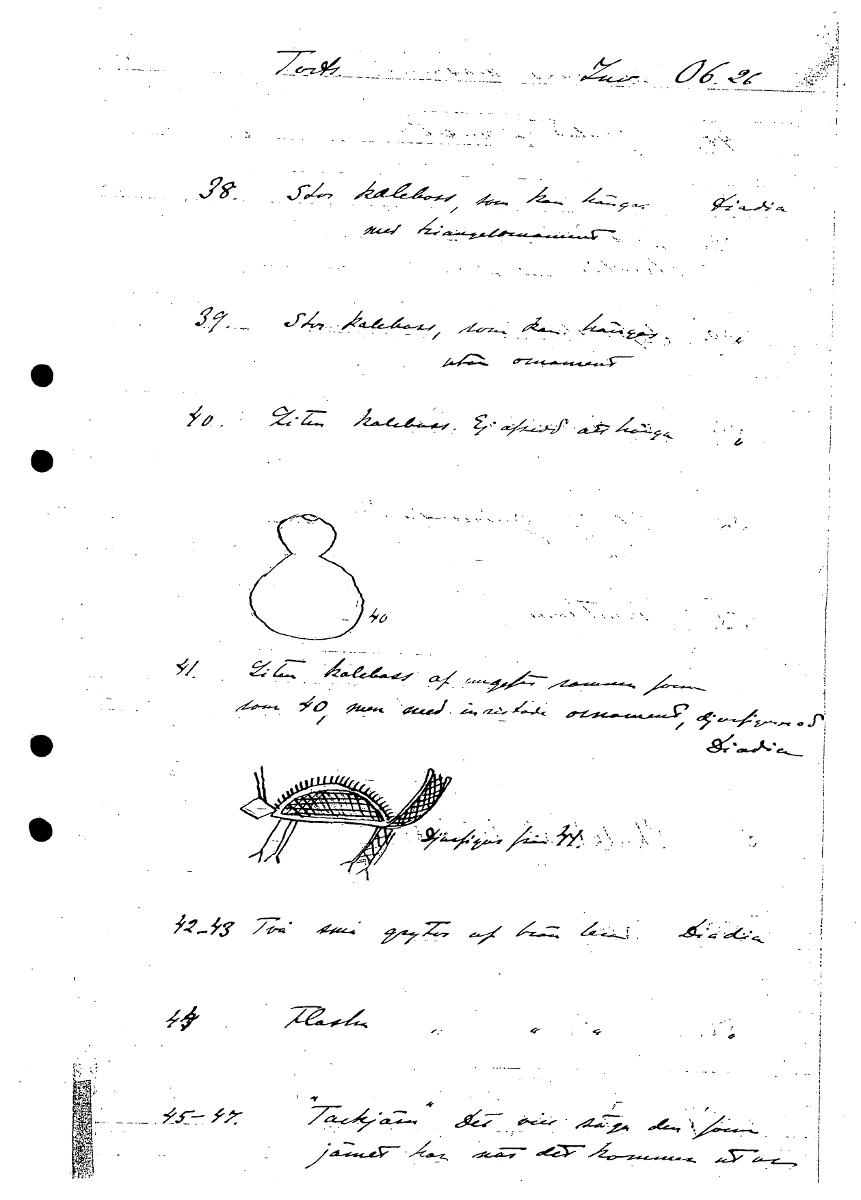 Inv. 06.26
38. Stor kalebass, som kan hängas Diadia
med triangelornament
39. Stor kalebass, som kan hängas "
utan ornament
40. Liten kalebass. Ej afsedd att hänga "
40
41. Liten kalebass af ungefär samma form
som 40, men med inristade ornament, djurfigurer od
Diadia
Djurfigur från 41.
42-43 Två små grytor af brän lera. Diadia
44 Flaska " " " "
45-47. "Tackjärn" Det vill säga den form
järnet har när det kommer ut ur